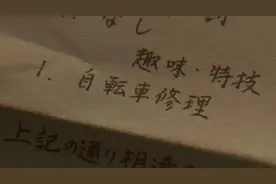 なし
趣味・特技
1. 自転車修理
上記の通り相違